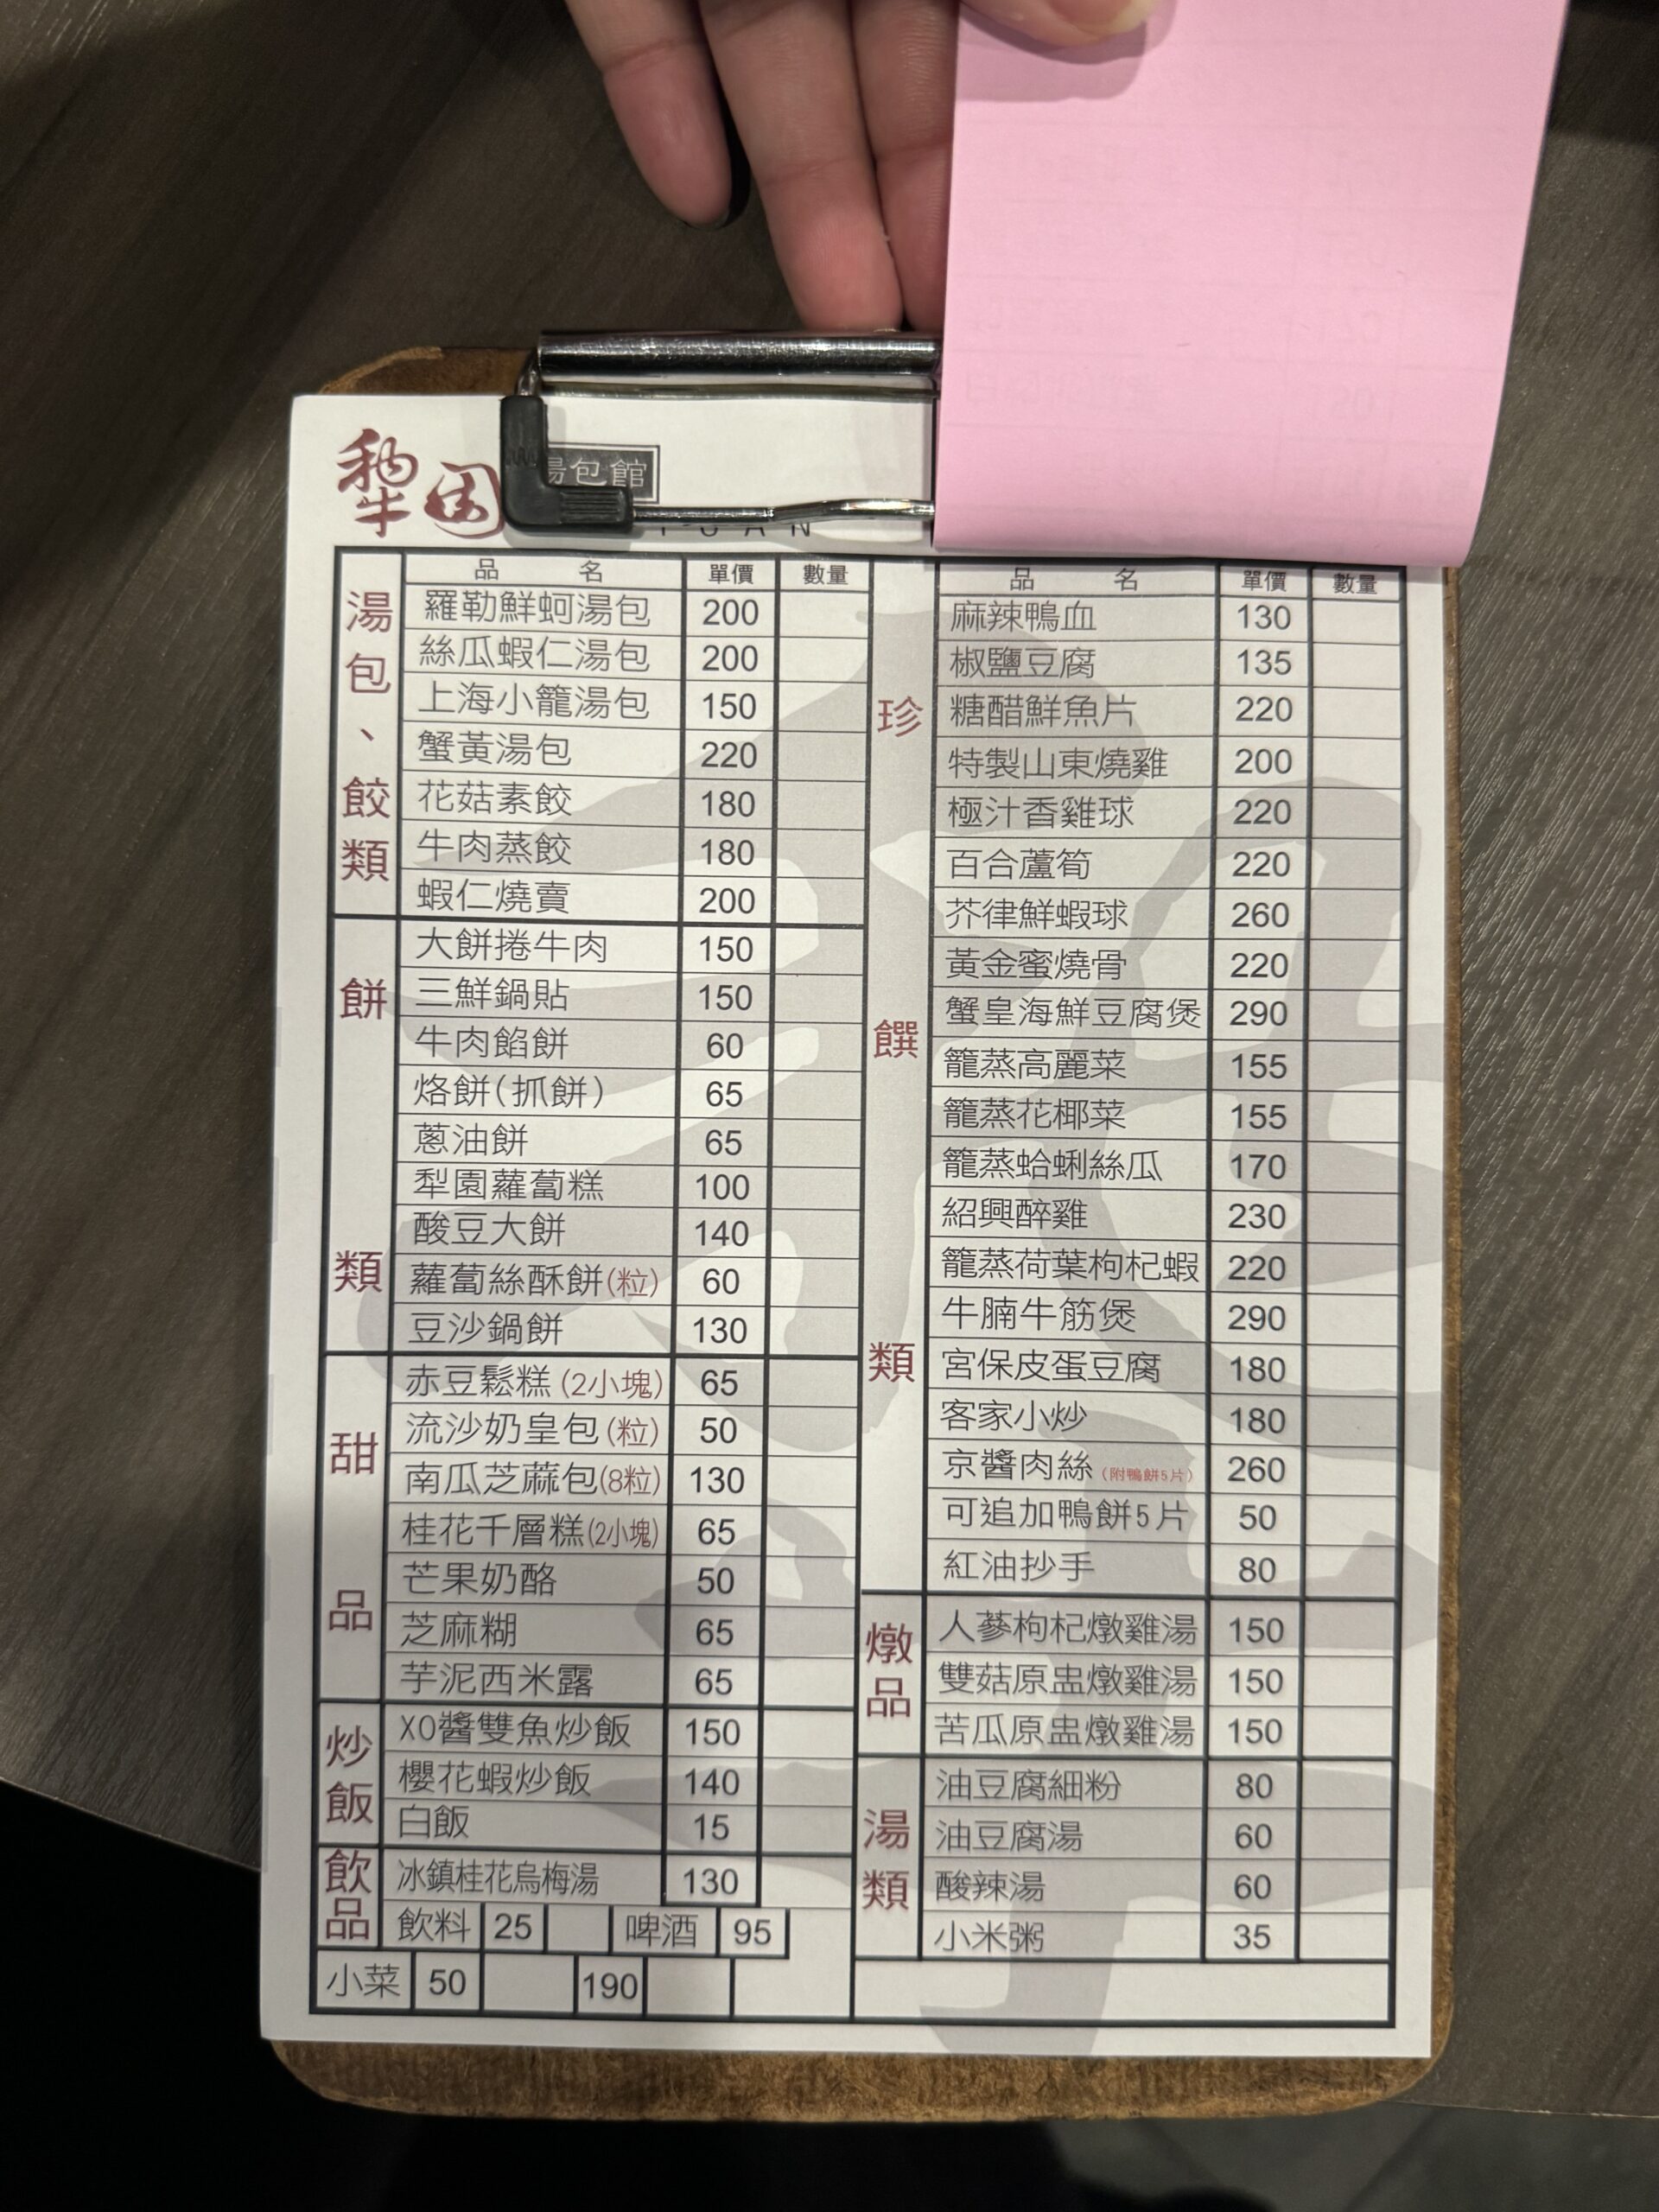 犂園 湯包館
YUAN
品名 單價 數量
湯包、餃類
羅勒鮮蚵湯包 200
絲瓜蝦仁湯包 200
上海小籠湯包 150
蟹黃湯包 220
花菇素餃 180
牛肉蒸餃 180
蝦仁燒賣 200
餅類
大餅捲牛肉 150
三鮮鍋貼 150
牛肉餡餅 60
烙餅(抓餅) 65
蔥油餅 65
犁園蘿蔔糕 100
酸豆大餅 140
蘿蔔絲酥餅(粒) 60
豆沙鍋餅 130
甜品
赤豆鬆糕(2小塊) 65
流沙奶皇包(粒) 50
南瓜芝蔴包(8粒) 130
桂花千層糕(2小塊) 65
芒果奶酪 50
芝麻糊 65
芋泥西米露 65
炒飯
XO醬雙魚炒飯 150
櫻花蝦炒飯 140
白飯 15
飲品
冰鎮桂花烏梅湯 130
飲料 25 啤酒 95
小菜 50 190
品名 單價 數量
珍饌類
麻辣鴨血 130
椒鹽豆腐 135
糖醋鮮魚片 220
特製山東燒雞 200
極汁香雞球 220
百合蘆筍 220
芥律鮮蝦球 260
黃金蜜燒骨 220
蟹皇海鮮豆腐煲 290
籠蒸高麗菜 155
籠蒸花椰菜 155
籠蒸蛤蜊絲瓜 170
紹興醉雞 230
籠蒸荷葉枸杞蝦 220
牛腩牛筋煲 290
宮保皮蛋豆腐 180
客家小炒 180
京醬肉絲(附鴨餅5片) 260
可追加鴨餅5片 50
紅油抄手 80
燉品
人蔘枸杞燉雞湯 150
雙菇原盅燉雞湯 150
苦瓜原盅燉雞湯 150
湯類
油豆腐細粉 80
油豆腐湯 60
酸辣湯 60
小米粥 35